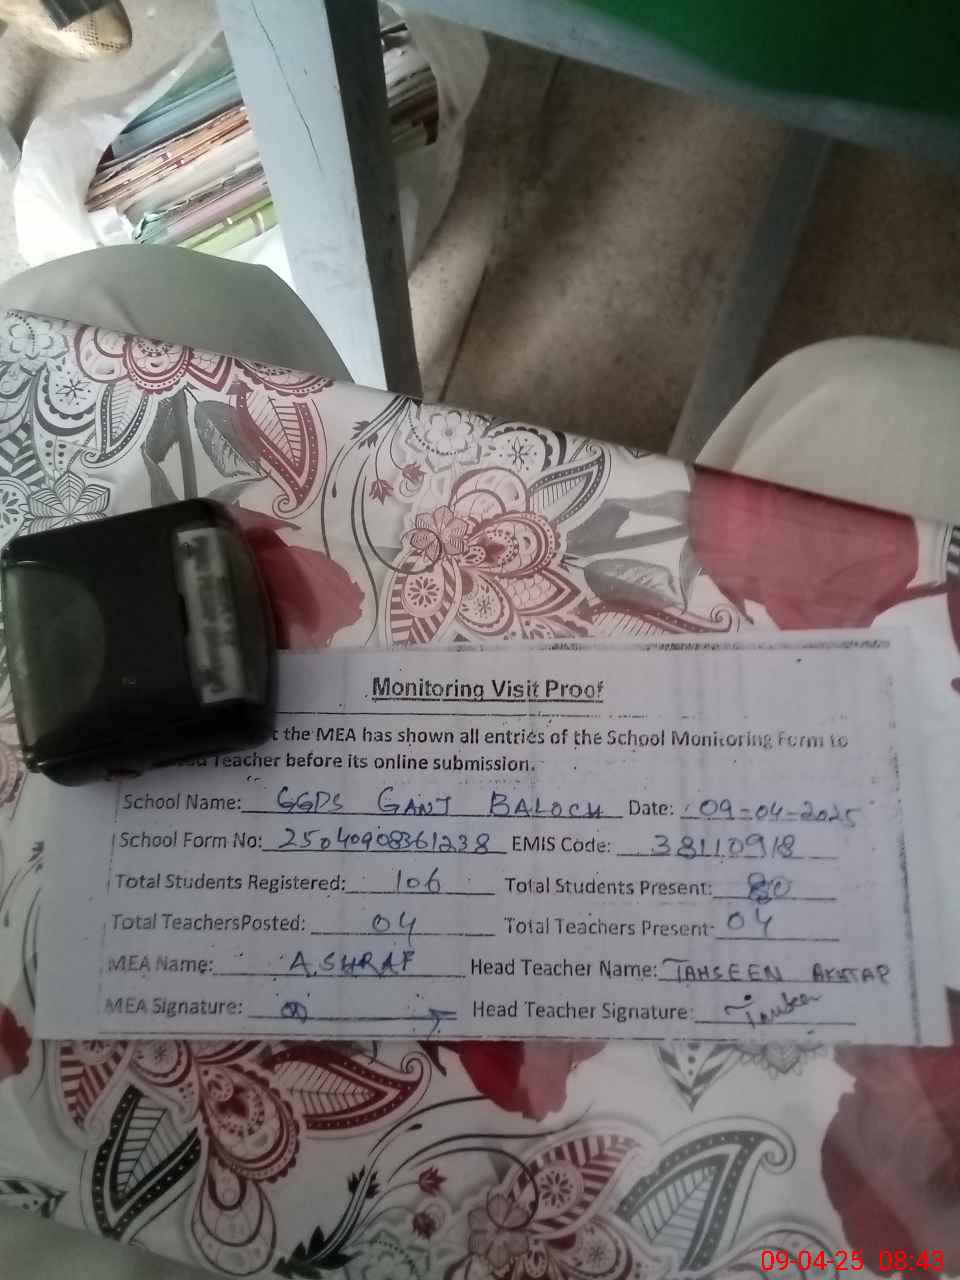 Monitoring Visit Proof
the MEA has shown all entries of the School Monitoring Form to
Teacher before its online submission.
School Name: GGPS GANJ BALOCH Date: 09-04-2025
School Form No: 25040908361238 EMIS Code: 38110918
Total Students Registered: 106 Total Students Present: 80
Total TeachersPosted: 04 Total Teachers Present: 04
MEA Name: ASHRAF Head Teacher Name: TAHSEEN AKHTAR
MEA Signature: Head Teacher Signature:
09-04-25 08:43